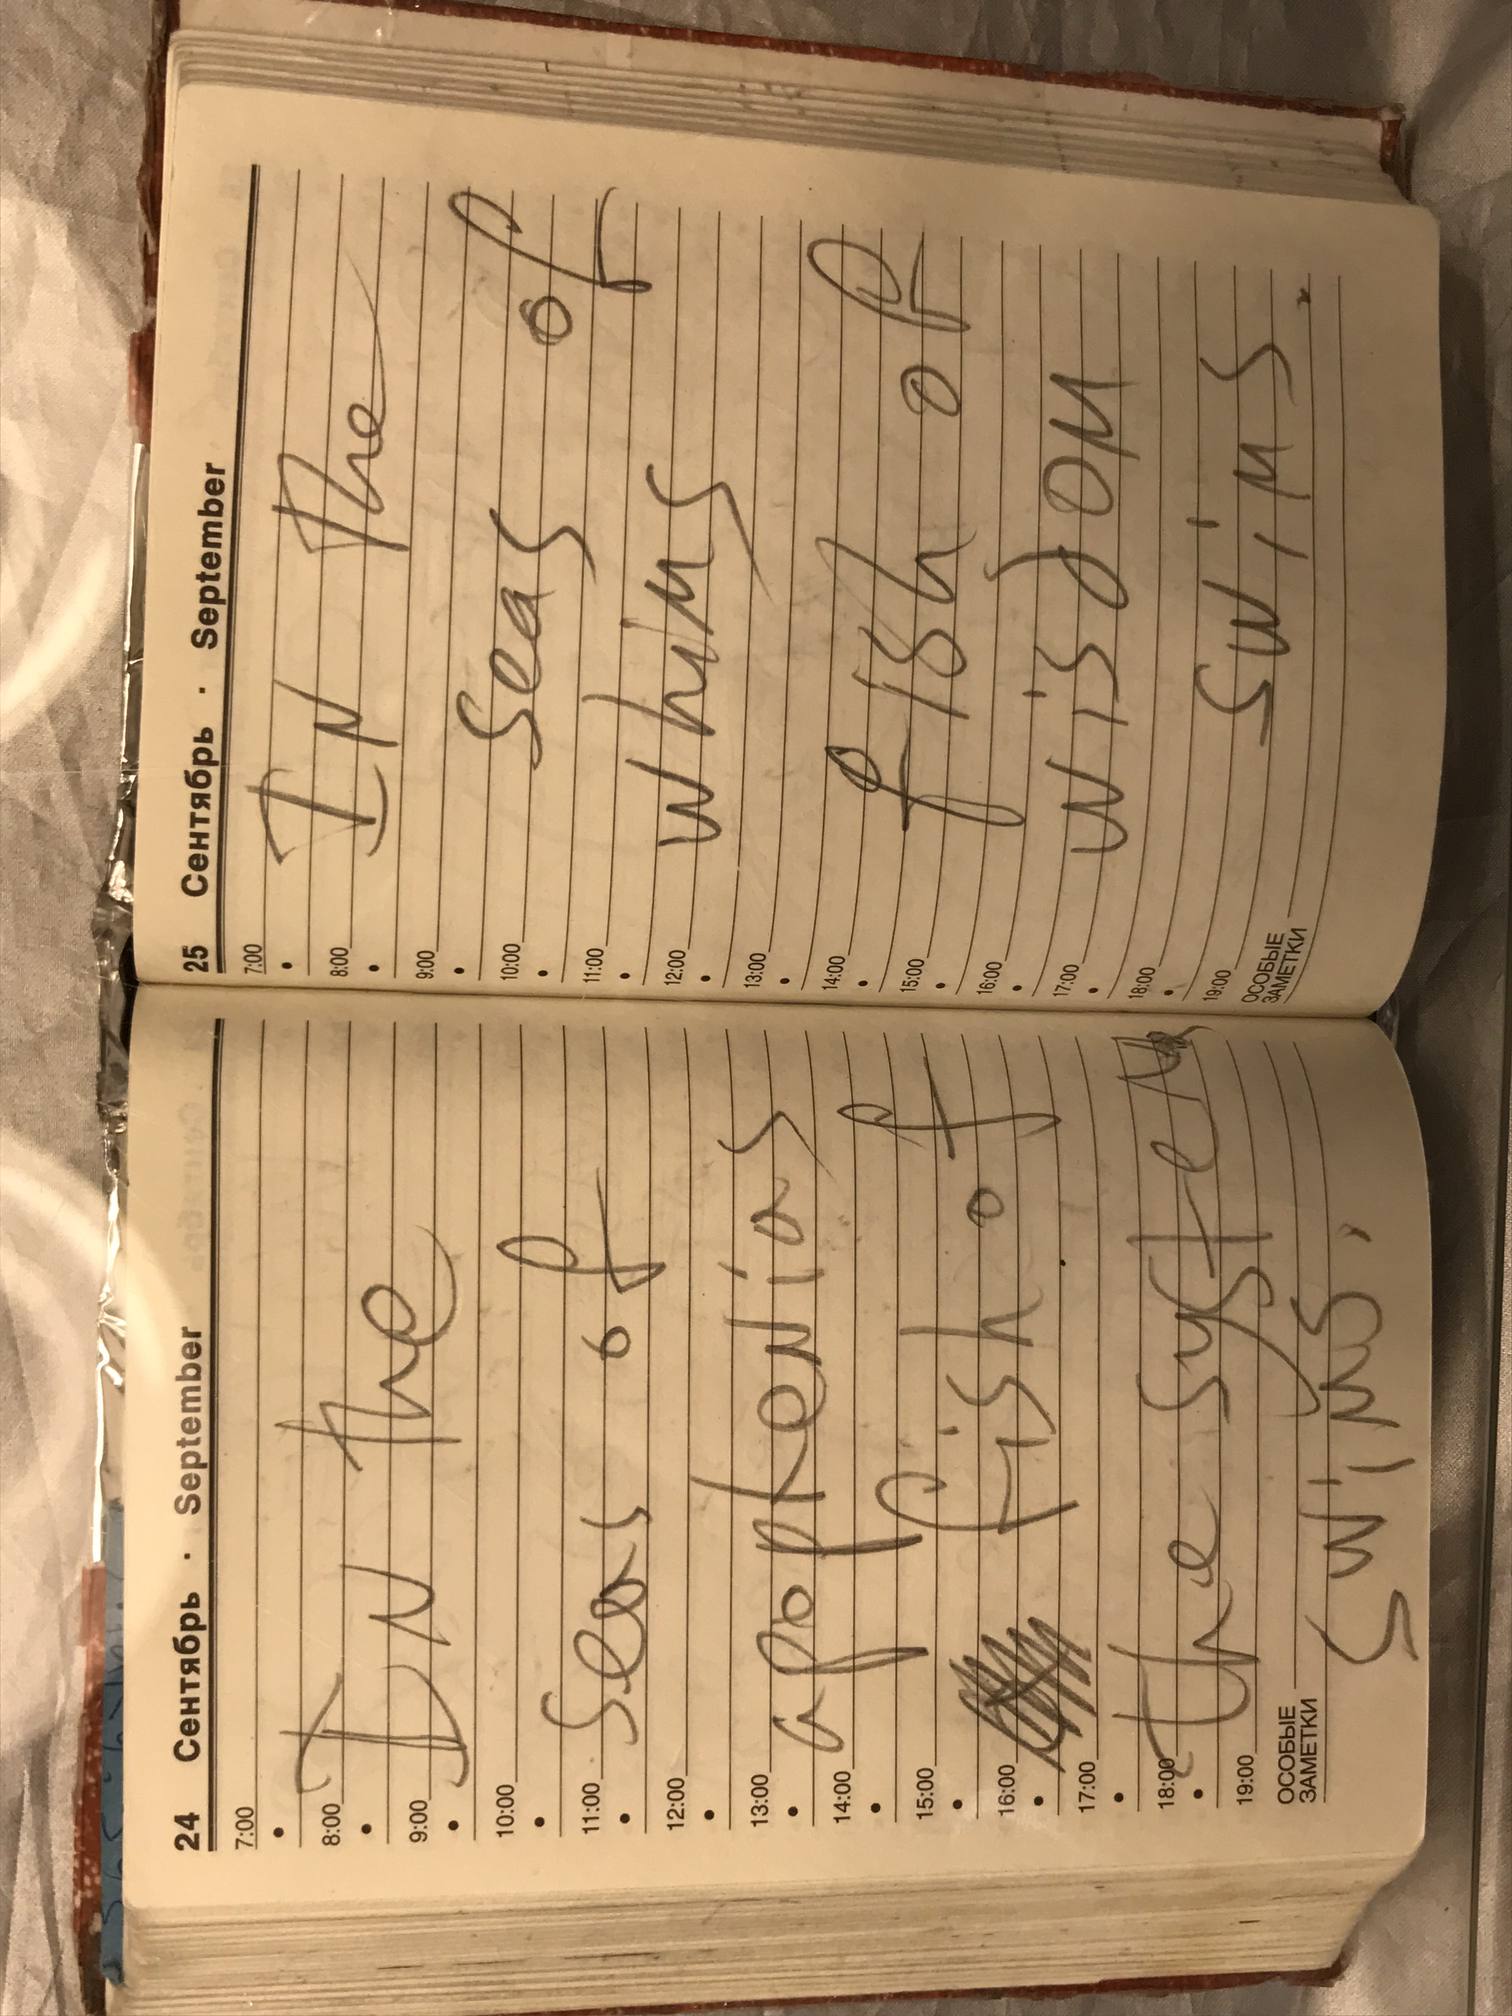 24 Сентябрь · September
7:00
8:00
9:00
10:00
11:00
12:00
13:00
14:00
15:00
16:00
17:00
18:00
19:00
ОСОБЫЕ
ЗАМЕТКИ
IN the
seas of
apofkenias
fish of
the system
swims,
25 Сентябрь · September
7:00
8:00
9:00
10:00
11:00
12:00
13:00
14:00
15:00
16:00
17:00
18:00
19:00
ОСОБЫЕ
ЗАМЕТКИ
IN the
seas of
whims
fish of
wisdom
swims